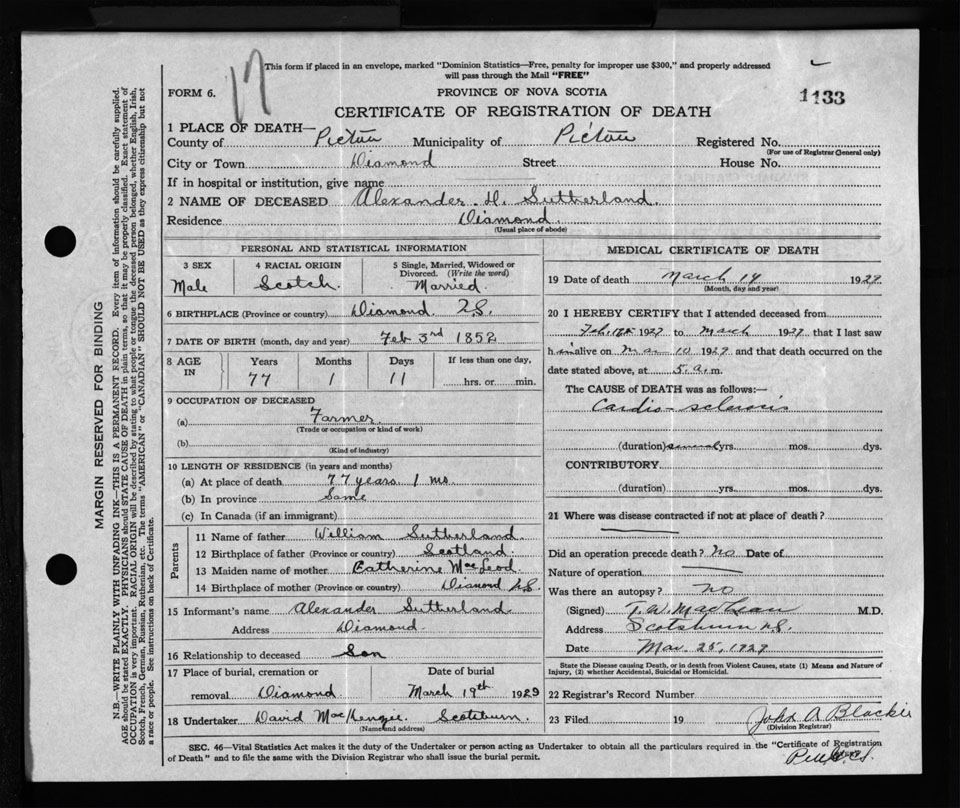 This form if placed in an envelope, marked "Dominion Statistics—Free, penalty for improper use $300," and properly addressed
will pass through the Mail "FREE"
17
FORM 6.
PROVINCE OF NOVA SCOTIA
1133
CERTIFICATE OF REGISTRATION OF DEATH
1 PLACE OF DEATH—
County of Pictou Municipality of Pictou Registered No.
(For use of Registrar General only)
City or Town Diamond Street House No.
If in hospital or institution, give name
2 NAME OF DECEASED Alexander H. Sutherland
Residence Diamond
(Usual place of abode)
PERSONAL AND STATISTICAL INFORMATION
3 SEX 4 RACIAL ORIGIN 5 Single, Married, Widowed or
Divorced. (Write the word)
Male Scotch Married
6 BIRTHPLACE (Province or country) Diamond N.S.
7 DATE OF BIRTH (month, day and year) Feb 3rd 1852
8 AGE IN Years Months Days If less than one day,
77 1 11 hrs. or min.
9 OCCUPATION OF DECEASED
(a) Farmer
(Trade or occupation or kind of work)
(b)
(Kind of industry)
10 LENGTH OF RESIDENCE (in years and months)
(a) At place of death 77 years 1 mo.
(b) In province Same
(c) In Canada (if an immigrant)
Parents
11 Name of father William Sutherland
12 Birthplace of father (Province or country) Scotland
13 Maiden name of mother Catherine MacLeod
14 Birthplace of mother (Province or country) Diamond N.S.
15 Informant's name Alexander Sutherland
Address Diamond
16 Relationship to deceased Son
17 Place of burial, cremation or Date of burial
removal Diamond March 19th 1929
18 Undertaker David MacKenzie Scotsburn
(Name and address)
MEDICAL CERTIFICATE OF DEATH
19 Date of death March 14 1929
(Month, day and year)
20 I HEREBY CERTIFY that I attended deceased from
Feb. 1929 to March 1929, that I last saw
him alive on Mar 10 1929 and that death occurred on the
date stated above, at 5 a. m.
The CAUSE of DEATH was as follows:—
Cardio-sclerosis
(duration) several yrs. mos. dys.
CONTRIBUTORY
(duration) yrs. mos. dys.
21 Where was disease contracted if not at place of death?
Did an operation precede death? No Date of
Nature of operation
Was there an autopsy? No
(Signed) T. W. MacLean M.D.
Address Scotsburn N.S.
Date Mar. 25, 1929
State the Disease causing Death, or in death from Violent Causes, state (1) Means and Nature of
Injury, (2) whether Accidental, Suicidal or Homicidal.
22 Registrar's Record Number
23 Filed 19 John A Blackie
(Division Registrar)
SEC. 46—Vital Statistics Act makes it the duty of the Undertaker or person acting as Undertaker to obtain all the particulars required in the "Certificate of Registration
of Death" and to file the same with the Division Registrar who shall issue the burial permit.
MARGIN RESERVED FOR BINDING
N.B.—WRITE PLAINLY WITH UNFADING INK—THIS IS A PERMANENT RECORD. Every item of information should be carefully supplied.
AGE should be stated EXACTLY. PHYSICIANS should STATE CAUSE OF DEATH in plain terms, so that it may be properly classified. Exact statement of
OCCUPATION is very important. RACIAL ORIGIN will be described by stating to what people or tongue the deceased person belonged, whether English, Irish,
Scotch, French, German, Russian, Ruthenian, etc. The terms "AMERICAN" or "CANADIAN" SHOULD NOT BE USED as they express citizenship but not
a race or people. See instructions on back of Certificate.